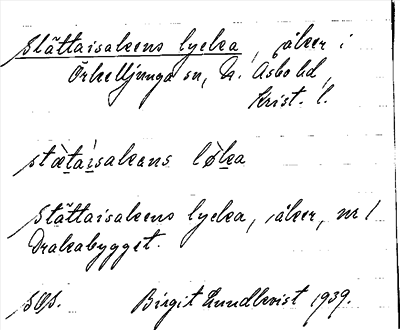 Slättaisakens lycka, åker i
Örkelljunga sn, N. Åsbo hd,
Krist. l.
stætaisakens løka
Stättaisakens lycka, åker, nr 1
Drakabygget.
Birgit Lundkvist 1939.